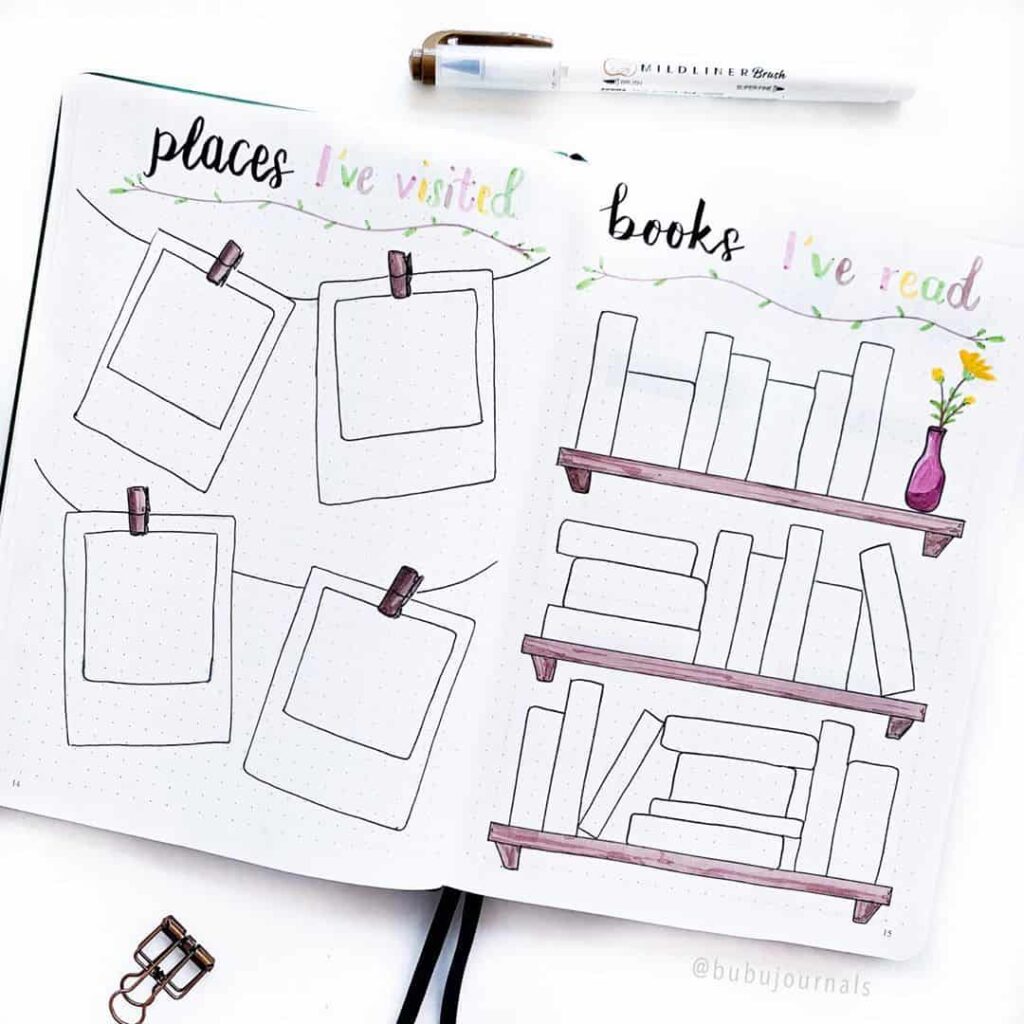 MILDLINER Brush
BRUSH
SUPER FINE
places I've visited
books I've read
14
15
@bubujournals